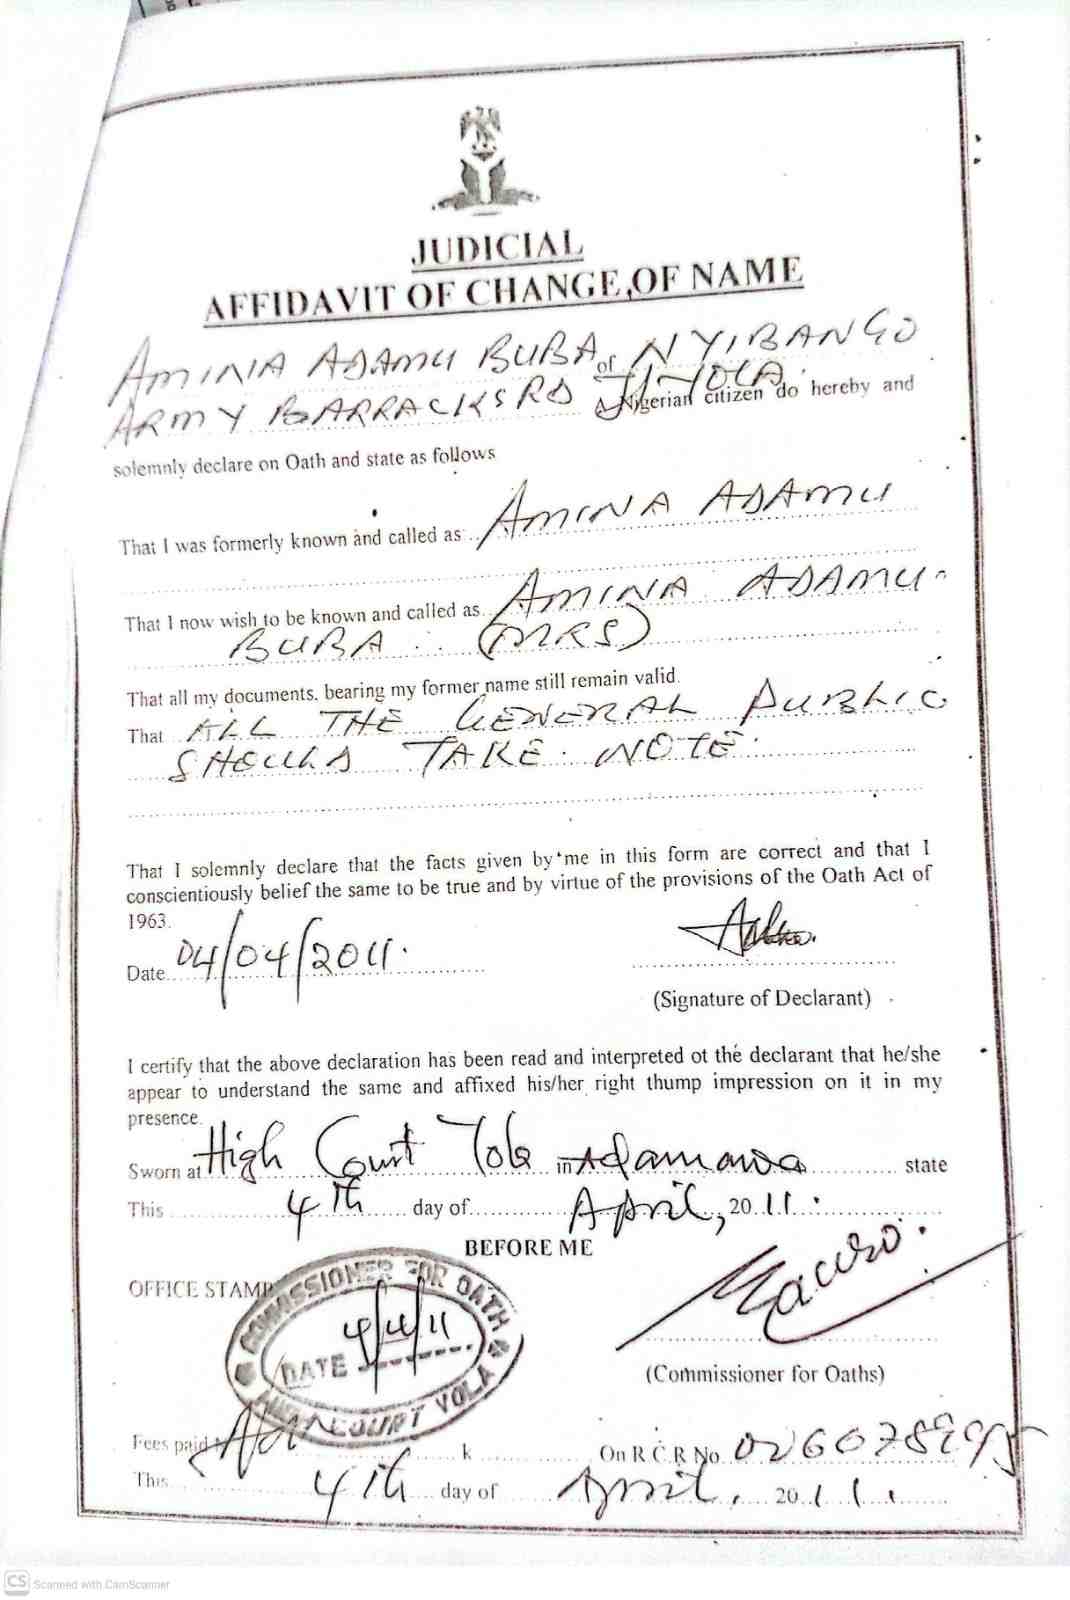 JUDICIAL
AFFIDAVIT OF CHANGE OF NAME
AMINA ADAMU BUBA of NYIBANGO
ARMY BARRACKS RD J/YOLA. A Nigerian citizen do hereby and
solemnly declare on Oath and state as follows
That I was formerly known and called as AMINA ADAMU
That I now wish to be known and called as AMINA ADAMU
BUBA (MRS)
That all my documents. bearing my former name still remain valid.
That ALL THE GENERAL PUBLIC
SHOULD TAKE NOTE
That I solemnly declare that the facts given by me in this form are correct and that I
conscientiously belief the same to be true and by virtue of the provisions of the Oath Act of
1963.
Date 04/04/2011.
(Signature of Declarant)
I certify that the above declaration has been read and interpreted ot the declarant that he/she
appear to understand the same and affixed his/her right thump impression on it in my
presence.
Sworn at High Court Yola in Adamawa state
This 4th day of April, 2011.
BEFORE ME
OFFICE STAMP
COMMISSIONER FOR OATH
DATE 4/4/11
COURT YOLA
(Commissioner for Oaths)
Fees paid k On R.C.R No.
This 4th day of April, 2011.
CS Scanned with CamScanner